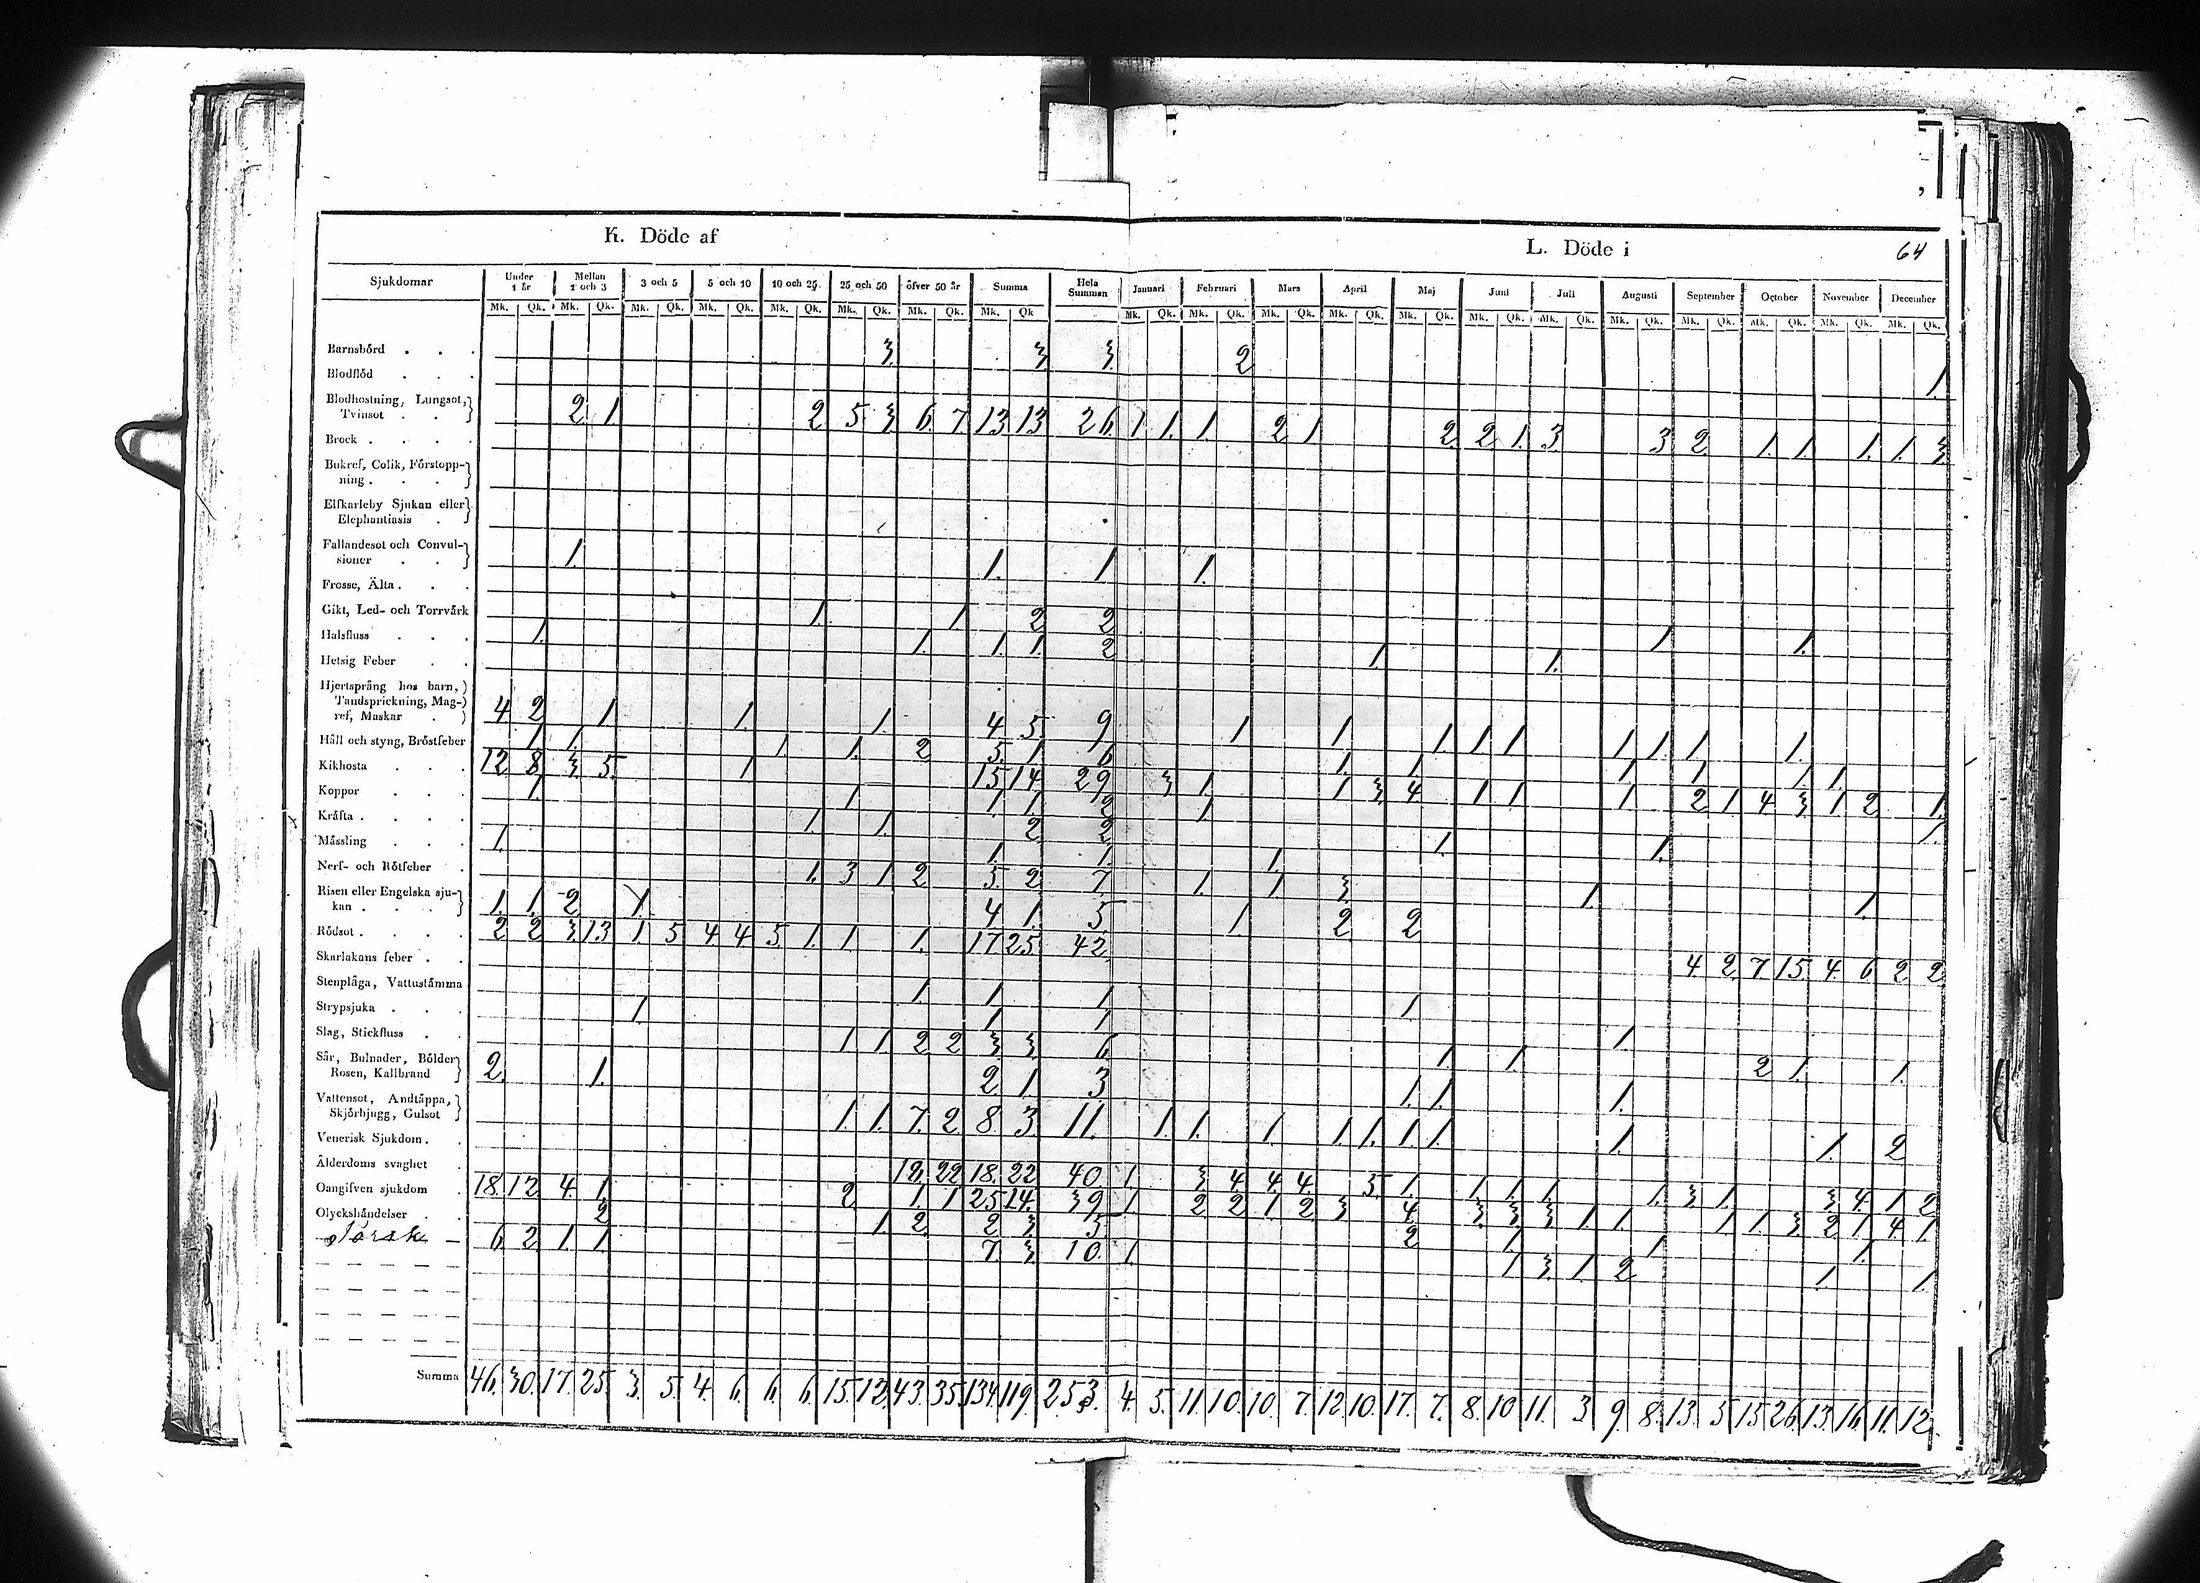 K. Döde af
L. Döde i 64
Sjukdomar Under 1 år Mellan 1 och 3 3 och 5 5 och 10 10 och 25 25 och 50 öfver 50 år Summa Hela Summan Januari Februari Mars April Maj Juni Juli Augusti September October November December
Mk. Qk. Mk. Qk. Mk. Qk. Mk. Qk. Mk. Qk. Mk. Qk. Mk. Qk. Mk. Qk Mk. Qk. Mk. Qk. Mk. Qk. Mk. Qk. Mk. Qk. Mk. Qk. Mk. Qk. Mk. Qk. Mk. Qk. Mk. Qk. Mk. Qk. Mk. Qk.
Barnsbörd . . . 3. 3 3. 2 1.
Blodflöd . . .
Blodhostning, Lungsot,
Tvinsot . . 2 1 2 5 3 6. 7 13 13 26. 1 1. 1. 2 1 2 2 1. 3. 3 2 1. 1 1. 1. 3.
Brock . . . .
Bukref, Colik, Förstopp-
ning . . . .
Elfkarleby Sjukan eller
Elephantiasis .
Fallandesot och Convul-
sioner . . 1. 1. 1 1.
Frosse, Älta . . .
Gikt, Led- och Torrvärk 1. 1. 2 2 1 1.
Halsfluss . . . 1. 1. 1. 1. 2 1. 1.
Hetsig Feber . .
Hjertsprång hos barn,
Tandsprickning, Mag-
ref, Maskar . 4 2 1 1. 1. 4 5 9 1 1 1 1 1 1 1. 1 1.
Håll och styng, Bröstfeber 1 1. 1 1. 2 5. 1. 6 1. 1. 1 1 1 1
Kikhosta . . . 12 8. 3 5. 1 15 14 29 3 1 1 3 4 1 1 1 2 1 4 3 1 2 1.
Koppor . . . 1. 1 1 1. 2 1 1.
Kräfta . . . . 1 1. 2 2 1. 1.
Mässling . . . 1. 1. 1. 1.
Nerf- och Rötfeber . 1. 3 1 2 5. 2 7 1 1 3 1.
Risen eller Engelska sju-
kan . . . 1. 1. 2 1. 4 1. 5 1 2 2 1.
Rödsot . . . . 2 2 3 13 1 5 4 4 5. 1. 1 1. 17 25 42 4 2. 7 15. 4. 6 2 2
Skarlakans feber . .
Stenplåga, Vattustämma 1. 1 1 1.
Strypsjuka . . . 1. 1 1 1.
Slag, Stickfluss . . 1 1. 2 2 3 3. 6. 1 1 2 1. 1.
Sår, Bulnader, Bölder
Rosen, Kallbrand 2. 1. 2. 1. 3 1. 1. 1.
Vattensot, Andtäppa,
Skjörbjugg, Gulsot 1. 1. 7. 2. 8 3. 11. 1. 1. 1. 1 1. 1. 1 1. 1. 2
Venerisk Sjukdom . .
Ålderdoms svaghet . 18. 22 18. 22 40 1. 3 4. 4. 4. 5. 1. 1. 1. 1 1. 3 1. 3 4. 1 2
Oangifven sjukdom . 18. 12 4. 1 2. 1. 1 25 14. 39 1. 2 2 1 2. 3 4. 3 3 3 1 1 1 1. 3. 2 1 4 1.
Olyckshändelser . . 2 1. 2. 2 3. 5 2 1. 1 1.
Torsk 6. 2 1. 1 7. 3 10. 1. 1 3. 1 2 1. 1.
Summa 46. 30. 17. 25. 3. 5. 4. 6. 6. 6. 15. 12. 43. 35. 134. 119. 253. 4. 5. 11. 10. 10. 7. 12. 10. 17. 7. 8. 10 11. 3 9. 8. 13. 5 15 26. 13. 16. 11. 12.